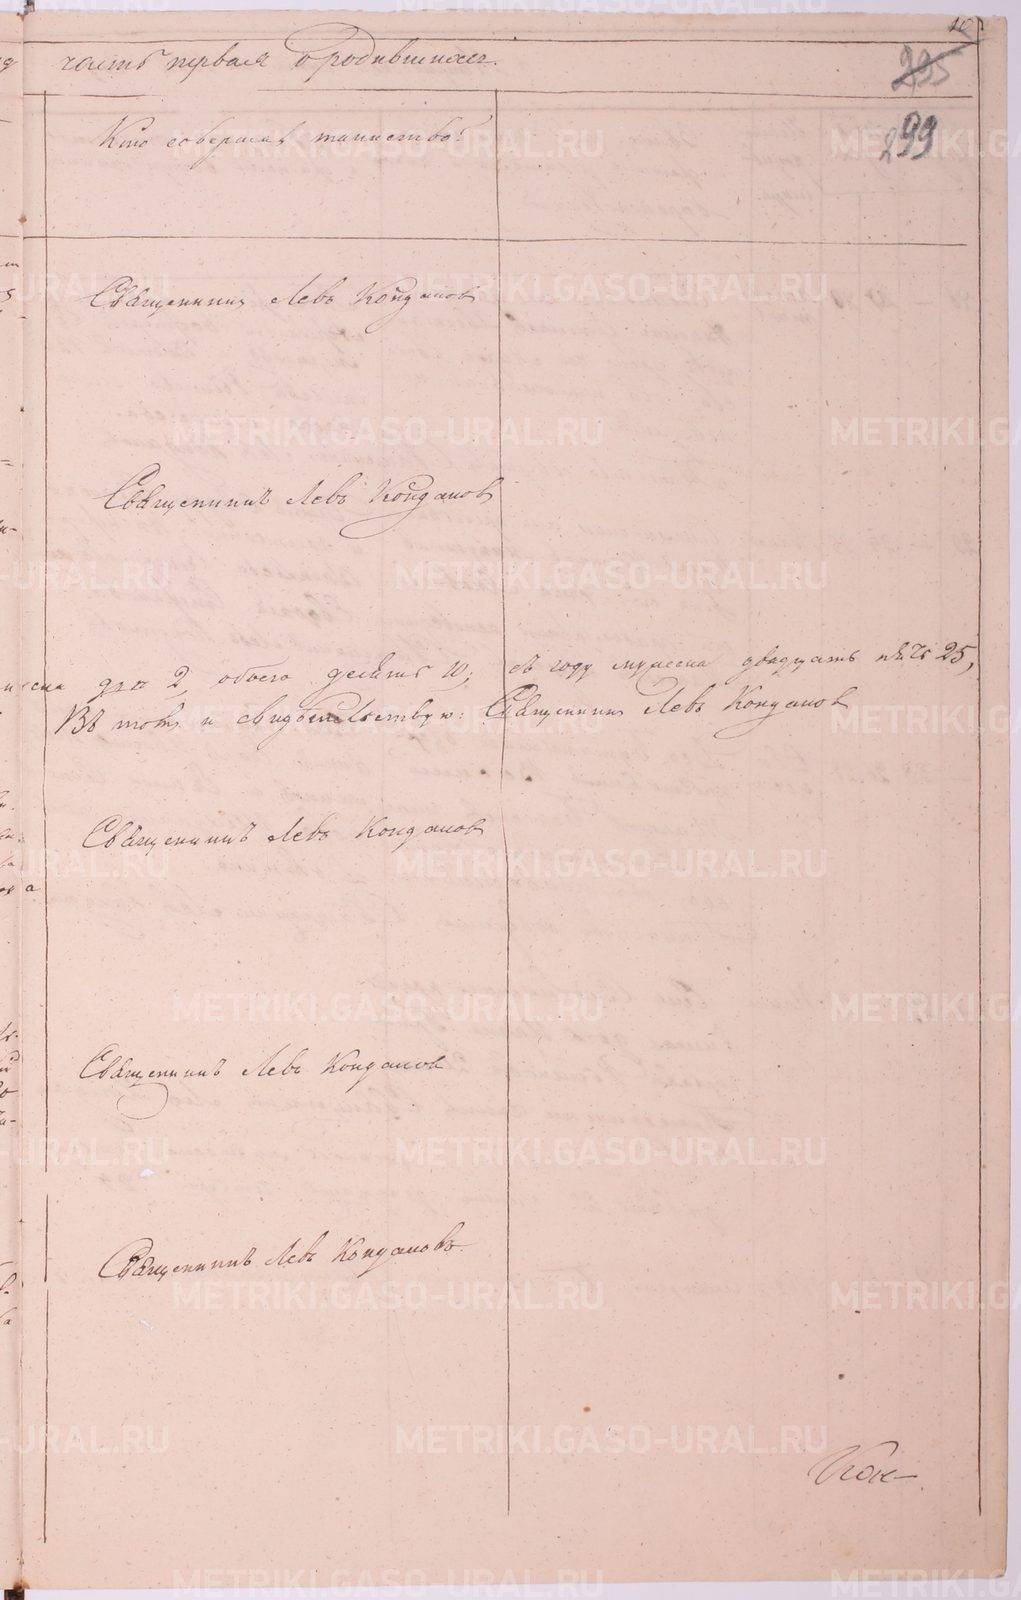 10
часть первая о родившихся.
295
299
Кто совершал таинство?
Священникъ Левъ Кондаковъ
Священникъ Левъ Кондаковъ
два 2, обоего десять 10; съ году мужеска двадцать пять 25,
Въ томъ и свидѣтельствую: Священникъ Левъ Кондаковъ
Священникъ Левъ Кондаковъ
Священникъ Левъ Кондаковъ
Священникъ Левъ Кондаковъ
Кон-
METRIKI.GASO-URAL.RU